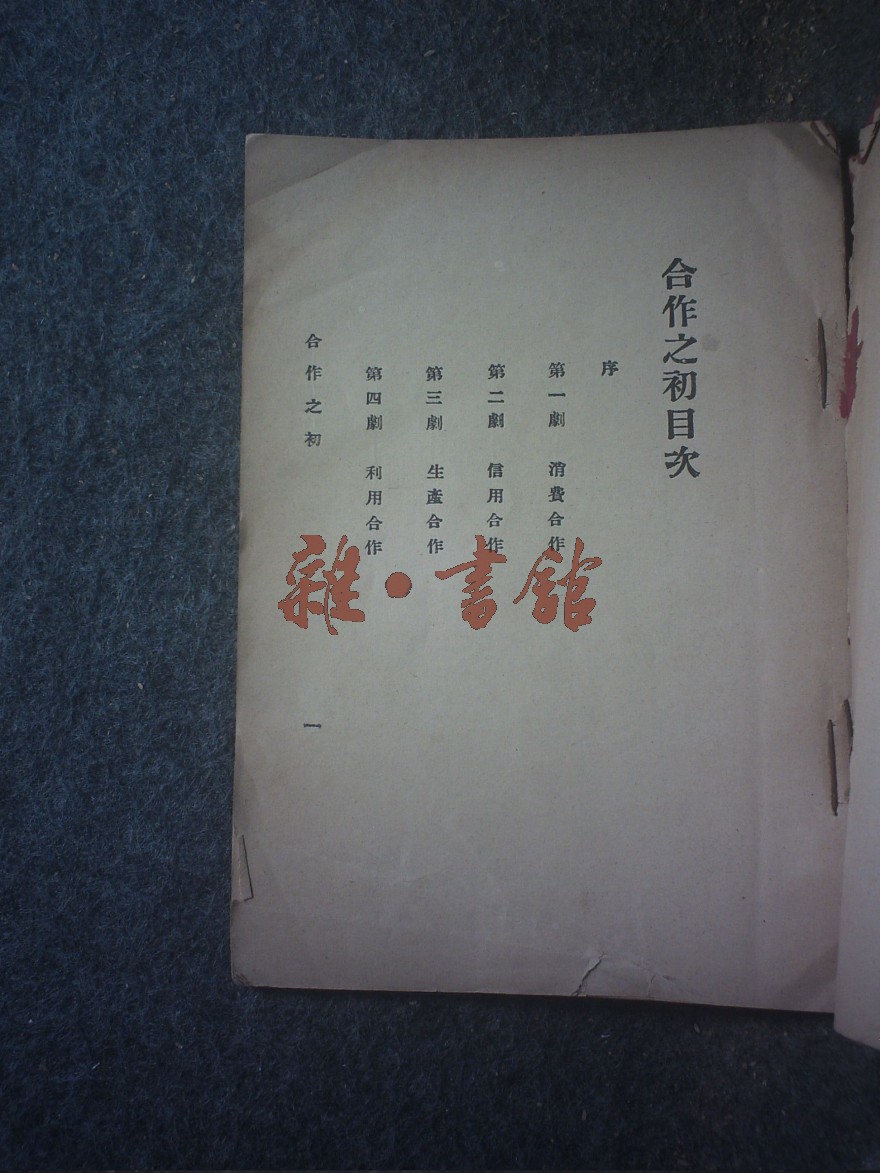 合作之初目次
序
第一劇 消費合作
第二劇 信用合作
第三劇 生產合作
第四劇 利用合作
合作之初
一
雜·書館